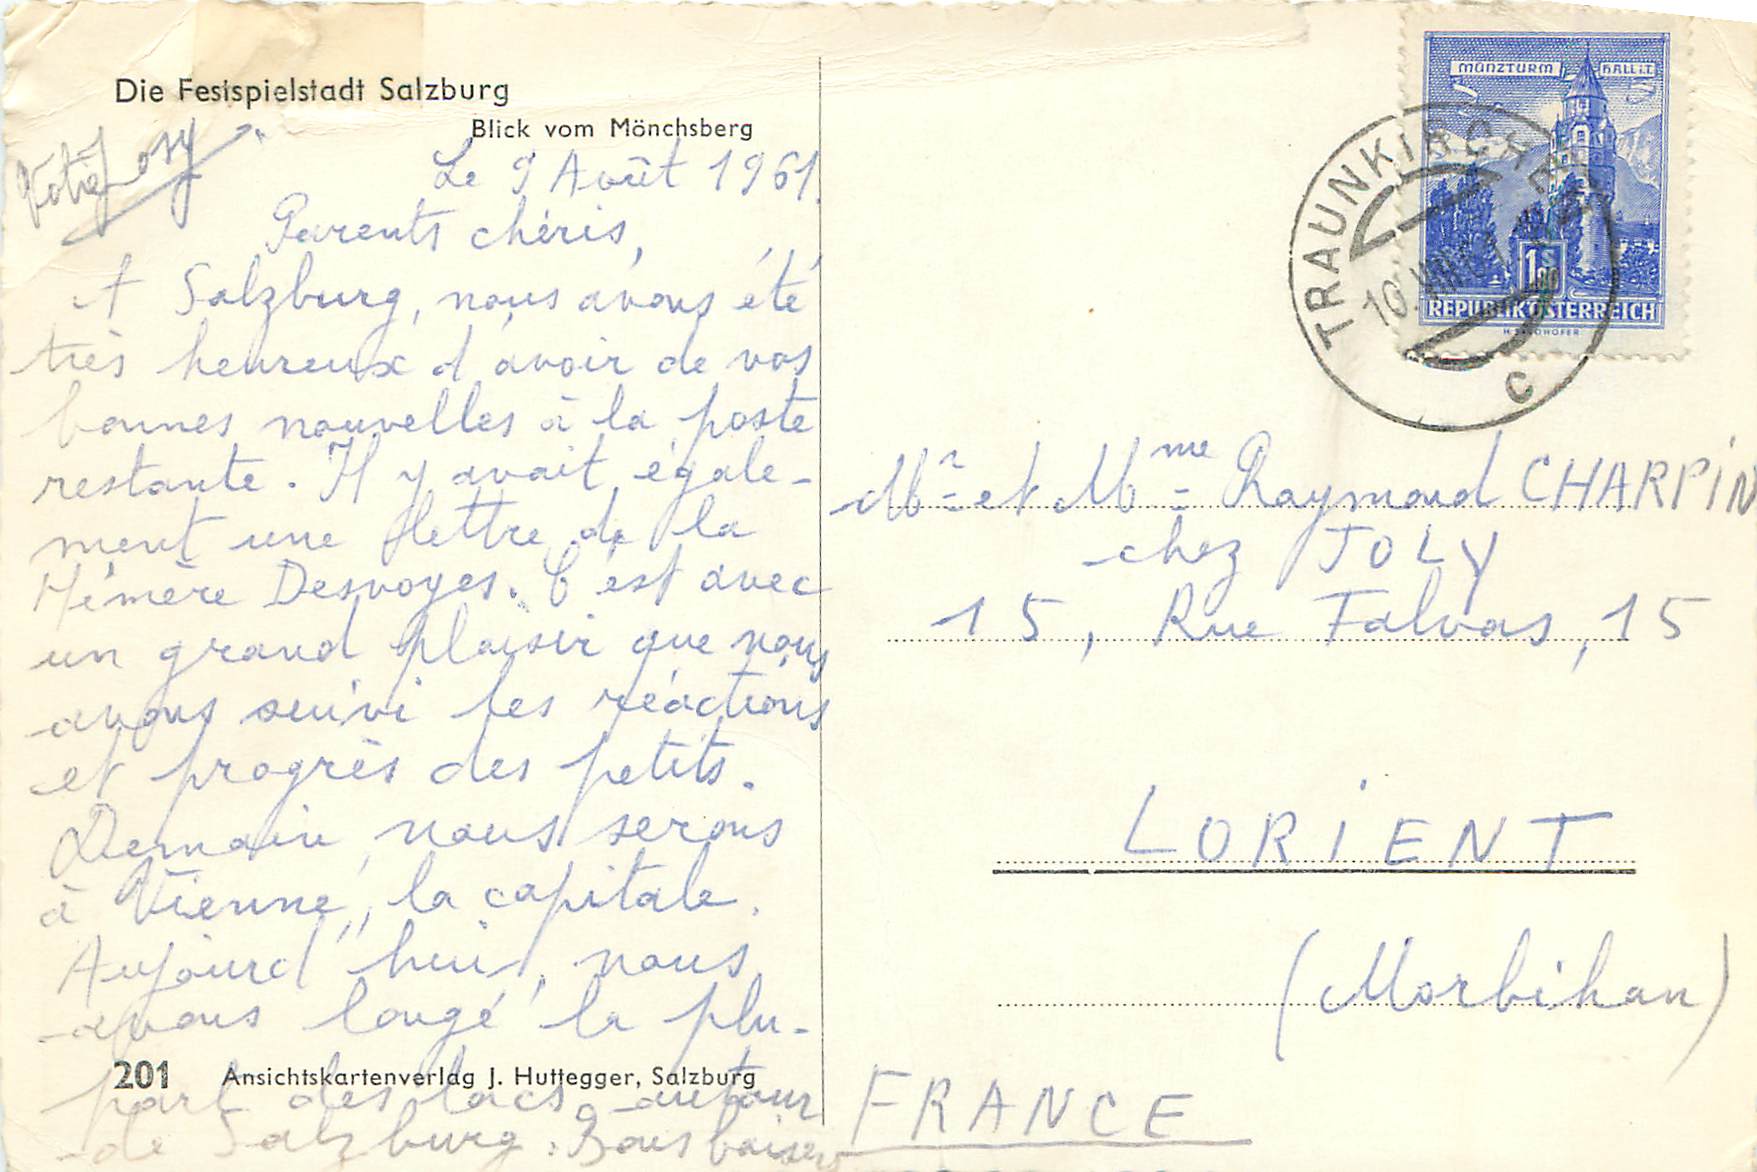 Die Festspielstadt Salzburg
Blick vom Mönchsberg
Le 9 Août 1961.
Parents chéris,
A Salzburg, nous avons été
très heureux d'avoir de vos
bonnes nouvelles à la poste
restante. Il y avait égale-
ment une lettre de la
Mémère Desvoyes. C'est avec
un grand plaisir que nous
avons suivi les réactions
et progrès des petits.
Demain, nous serons
à Vienne, la capitale.
Aujourd'hui, nous
avons longé la plu-
part des lacs autour
de Salzburg. Bons baisers
201 Ansichtskartenverlag J. Huttegger, Salzburg
MÜNZTURM HALL i.T.
1S
REPUBLIK ÖSTERREICH
TRAUNKIRCHEN
10.VIII.61
c
Mr et Mme Raymond CHARPIN
chez JOLY
15, Rue Falvas, 15
LORIENT
(Morbihan)
FRANCE